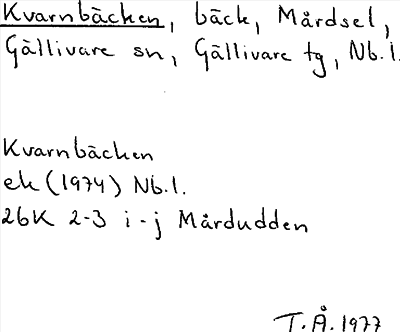 Kvarnbäcken, bäck, Mårdsel,
Gällivare sn, Gällivare tg, Nb.l.
Kvarnbäcken
ek (1974) Nb.l.
26K 2-3 i-j Mårdudden
T.Å.1977